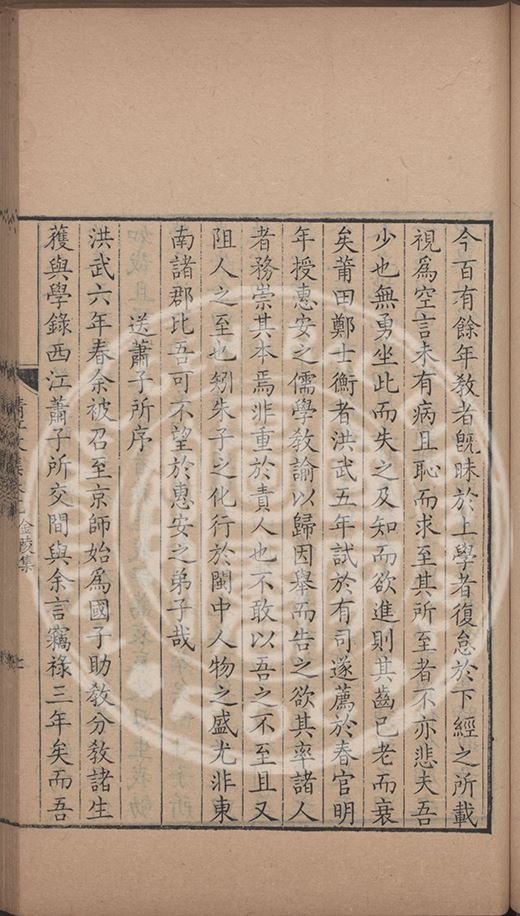 今百有餘年教者旣昧於上學者復怠於下經之所載
視爲空言未有病且恥而求至其所至者不亦悲夫吾
少也無勇坐此而失之及知而欲進則其齒已老而衰
矣莆田鄭士衡者洪武五年試於有司遂薦於春官明
年授惠安之儒學教諭以歸因舉而告之欲其率諸人
者務崇其本焉非重於責人也不敢以吾之不至且又
阻人之至也矧朱子之化行於閩中人物之盛尤非東
南諸郡比吾可不望於惠安之弟子哉
送蕭子所序
洪武六年春余被召至京師始爲國子助教分教諸生
獲與學錄西江蕭子所交間與余言竊祿三年矣而吾
金陵集
七